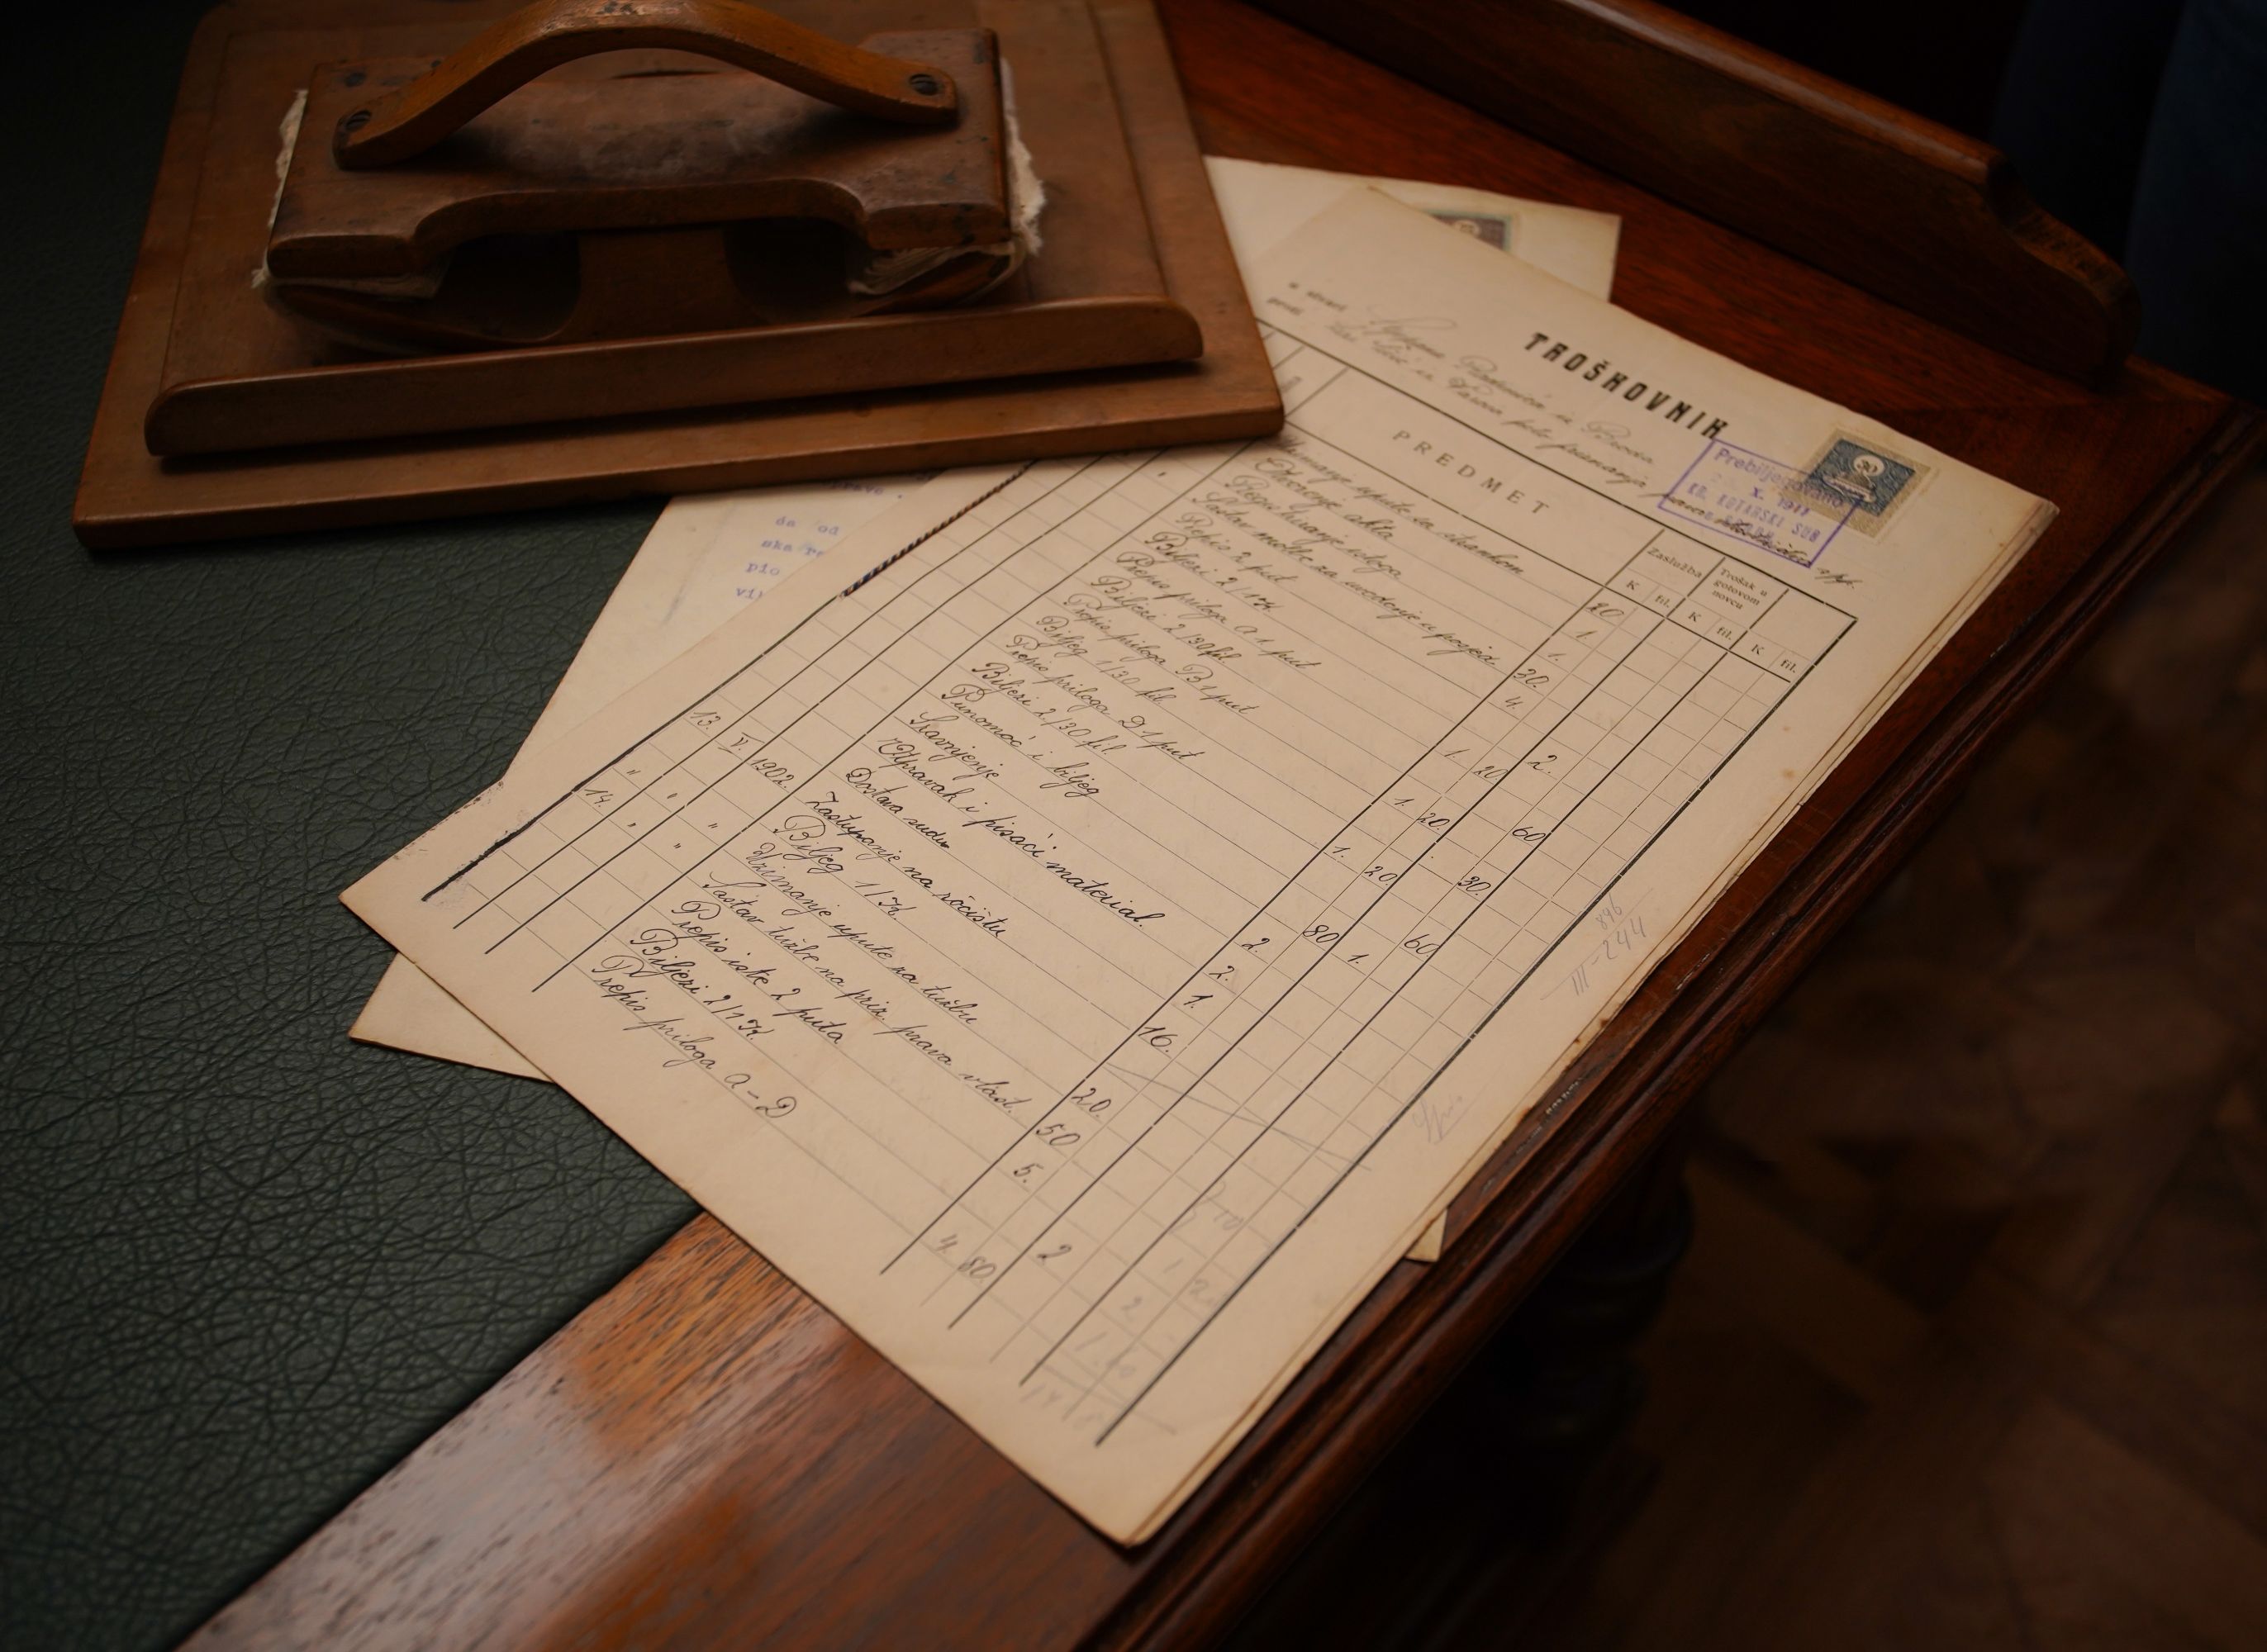 TROŠKOVNIK
u stvari Stjepana
proti
Prebiljegovano
X. 1911
KR. KOTARSKI SUD
30
PREDMET
Zaslužba
Trošak u
gotovom
novcu
K fil. K fil. K fil.
upute sa strankom 20
Otvorenje akta 1.
Pregledavanje istoga 1.
Sastav molbe za uvođenje u posjed 30.
Prepis 2 put 4.
Biljezi 2/1K. 2.
Prepis priloga A 1 put 1. 20
Biljezi 2/30 fil 60
Prepis priloga B 1 put 1. 20.
Biljeg 1/30 fil 30.
Prepis priloga D 1 put 1. 20
Biljezi 2/30 fil 60
Punomoć i biljeg 2. 80 1.
Slavnjenje 2.
Otpravak i pisaći material. 1.
Dostava sudu
13. V. 1902. Zastupanje na ročištu 16.
Biljeg 1/K.
" " " Uzimanje upute za tužbu 20.
14. " " Sastav tužbe na priz. prava vlast. 50
Prepis iste 2 puta 5.
Biljezi 2/1K. 2
Prepis priloga A-D 4. 80
896
III-244
da od
ska
pio